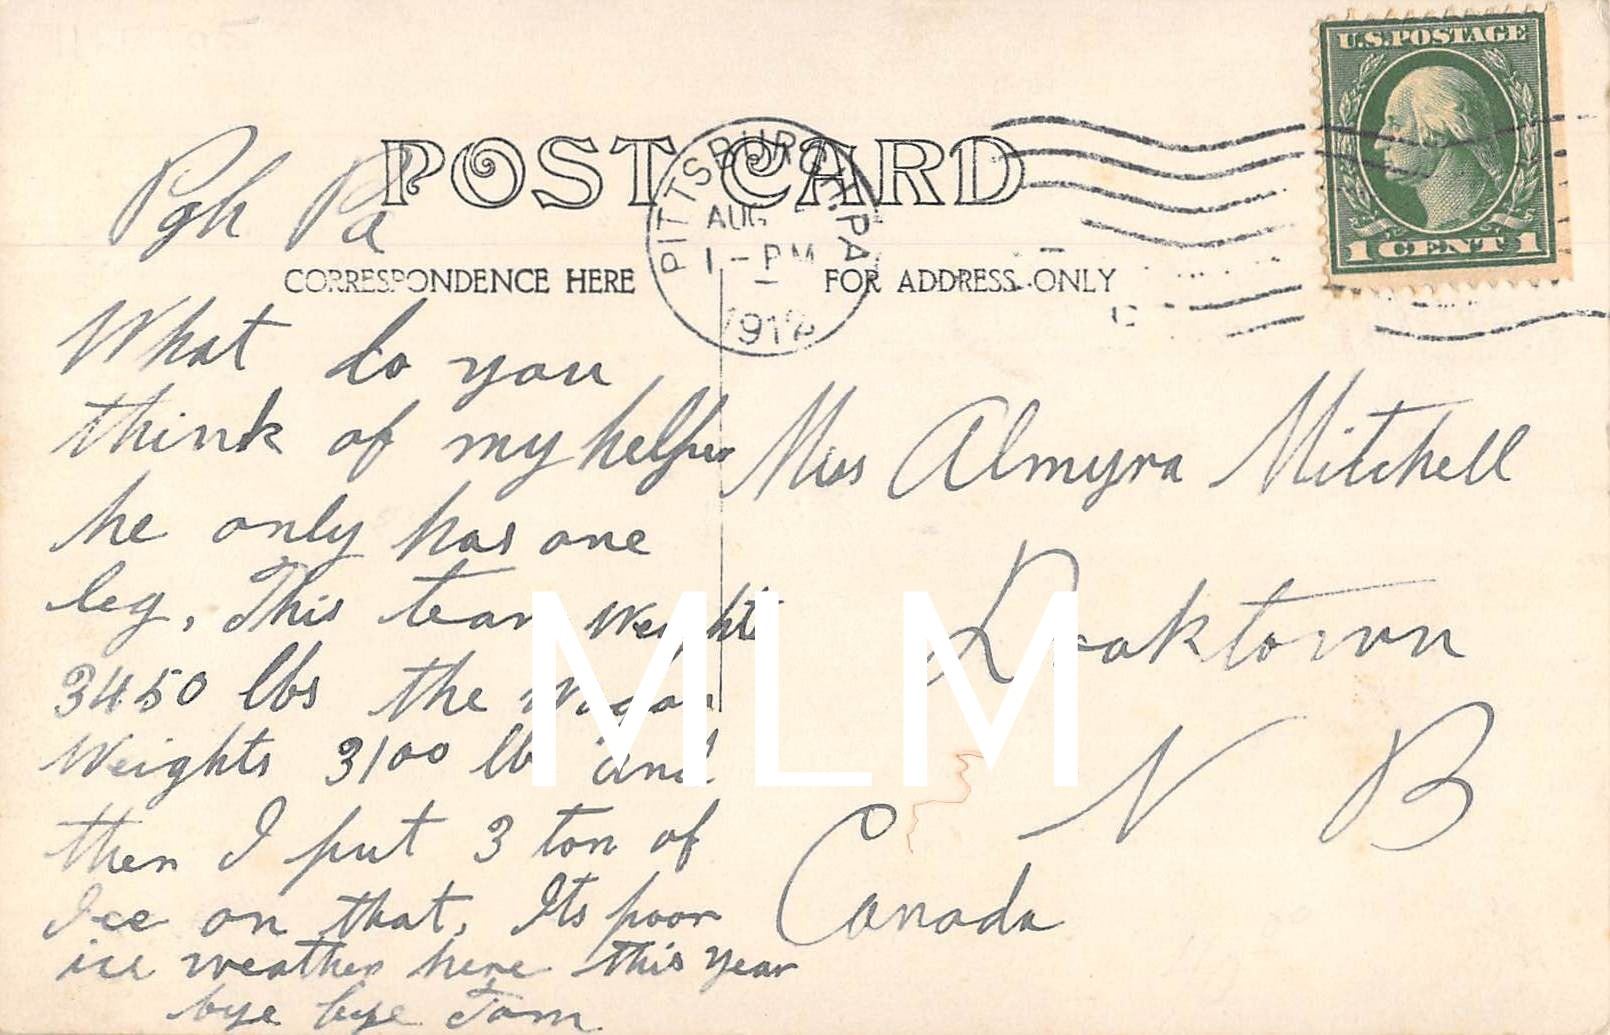 U.S. POSTAGE
1 CENT 1
POST CARD
PITTSBURGH, PA
AUG
1 - PM
1912
Pgh Pa
CORRESPONDENCE HERE
FOR ADDRESS ONLY
What do you
think of my helper
he only has one
leg, This team Weights
3450 lbs the Wagon
Weights 3100 lb and
then I put 3 ton of
Ice on that, Its poor
ice weather here this year
bye bye Tom
Miss Almyra Mitchell
Doaktown
N B
Canada
MLM